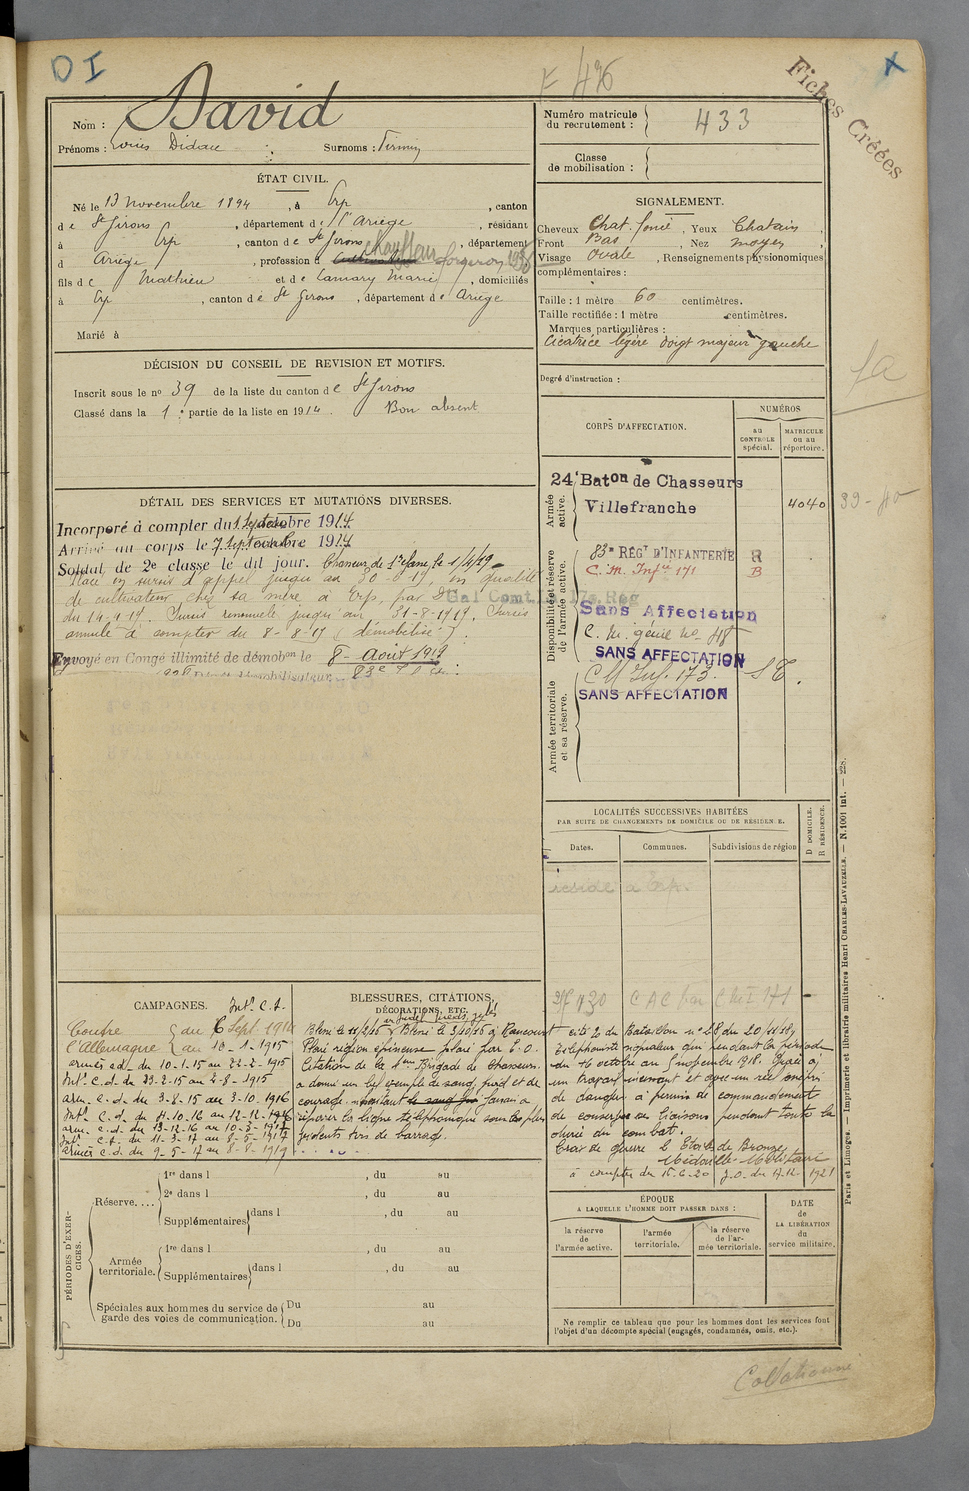 D I
F 436
X
Fiches Créées
Nom : David
Prénoms : Louis Surnoms : Firmin
Numéro matricule du recrutement : 433
Classe de mobilisation :
ÉTAT CIVIL.
Né le 13 novembre 1894, à Erp, canton
de St Girons, département de l'Ariège, résidant
à Erp, canton de St Girons, département
d Ariège, profession d chauffeur forgeron
fils de Mathieu et de Camary Marie, domiciliés
à Erp, canton de St Girons, département de Ariège
Marié à
SIGNALEMENT.
Cheveux Chat. foncé, Yeux Chatain,
Front Bas, Nez moyen,
Visage Ovale, Renseignements physionomiques
complémentaires :
Taille : 1 mètre 60 centimètres.
Taille rectifiée : 1 mètre centimètres.
Marques particulières :
Cicatrice légère doigt majeur gauche
Degré d'instruction :
1a
DÉCISION DU CONSEIL DE REVISION ET MOTIFS.
Inscrit sous le no 39 de la liste du canton de St Girons
Classé dans la 1e partie de la liste en 1914. Bon absent
DÉTAIL DES SERVICES ET MUTATIONS DIVERSES.
Incorporé à compter du 1914
Arrivé au corps le 7 septembre 1914
Soldat de 2e classe le dit jour. Chasseur de 1re classe le 1/4/19
Placé en sursis d'appel jusqu'au 30-6-19, en qualité
de cultivateur chez sa mère à Erp, par
du 14-4-19. Sursis renouvelé jusqu'au 31-8-1919. Sursis
annulé à compter du 8-8-19 (démobilisé).
Envoyé en Congé illimité de démobon le 8 - Août 1919
CORPS D'AFFECTATION.
NUMÉROS
au CONTROLE spécial.
MATRICULE ou au répertoire.
Armée active.
24e Baton de Chasseurs
Villefranche
4040
39-40
Disponibilité et réserve de l'armée active.
83e RÉGt D'INFANTERIE R
C. M. Infie 171 B
Sans Affectation
C. M. génie no 48
SANS AFFECTATION
Armée territoriale et sa réserve.
C M Inf. 173. S T.
SANS AFFECTATION
LOCALITÉS SUCCESSIVES HABITÉES
PAR SUITE DE CHANGEMENTS DE DOMICILE OU DE RÉSIDENCE.
Dates.
Communes.
Subdivisions de région
D DOMICILE.
R RÉSIDENCE.
réside à Erp.
CAMPAGNES. Intr. C.S.
Contre du 6 Sept. 1914
l'Allemagne au 10-1-1915
armées cd. du 10-1-15 au 22-2-1915
Intr. c.d. du 23-2-15 au 2-8-1915
arm. c.d. du 3-8-15 au 3-10-1916
Intr. c.d. du 4-10-16 au 12-12-1916
arm. c.d. du 13-12-16 au 10-3-1917
Intr. c.d. du 11-3-17 au 8-5-1917
armées c.d. du 9-5-17 au 8-8-1919
BLESSURES, CITATIONS, DÉCORATIONS, ETC.
Blessé le 3/10/16 à Rancourt
Plaie région épineuse par E.O.
Citation de la Brigade de Chasseurs.
a donné un bel exemple de sang froid et de
courage
réparer la ligne téléphonique sous les plus
violents tirs de barrage.
cité O. du Bataillon no 28 du 20/11/18
Téléphoniste signaleur qui pendant la période
du 16 octobre au 5 novembre 1918. Grâce à
un travail incessant et avec un réel mépris
du danger a permis de commandement
de conserver ses liaisons pendant toute la
durée du combat.
Croix de guerre Etoile de Bronze
Médaille Militaire
à compter du 16-6-20 J.O. du 17-12-1921
PÉRIODES D'EXERCICES.
Réserve....
1re dans l , du au
2e dans l , du au
Supplémentaires dans l , du au
Armée territoriale.
1re dans l , du au
Supplémentaires dans l , du au
Spéciales aux hommes du service de garde des voies de communication.
Du au
Du au
ÉPOQUE
A LAQUELLE L'HOMME DOIT PASSER DANS :
la réserve de l'armée active.
l'armée territoriale.
la réserve de l'armée territoriale.
DATE de LA LIBÉRATION du service militaire.
Ne remplir ce tableau que pour les hommes dont les services font
l'objet d'un décompte spécial (engagés, condamnés, omis, etc.).
Paris et Limoges. — Imprimerie et librairie militaires Henri CHARLES-LAVAUZELLE. — N. 1001 int. — 228.
Collationné